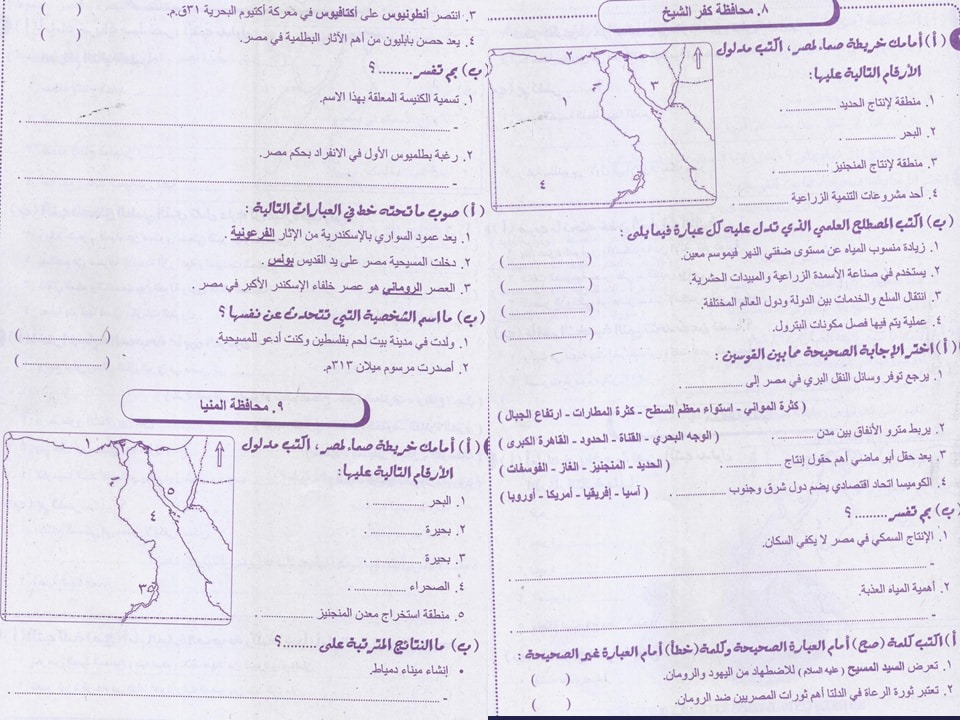 ٨. محافظة كفر الشيخ
(أ) أمامك خريطة صماء لمصر، اكتب مدلول
الأرقام التالية عليها:
١. منطقة لإنتاج الحديد ............ .
٢. البحر ............ .
٣. منطقة لإنتاج المنجنيز ............ .
٤. أحد مشروعات التنمية الزراعية ............ .
١
٢
٣
٤
(ب) اكتب المصطلح العلمي الذي تدل عليه كل عبارة فيما يلى :
١. زيادة منسوب المياه عن مستوى ضفتي النهر فيموسم معين. ( ............ )
٢. يستخدم في صناعة الأسمدة الزراعية والمبيدات الحشرية. ( ............ )
٣. انتقال السلع والخدمات بين الدولة ودول العالم المختلفة. ( ............ )
٤. عملية يتم فيها فصل مكونات البترول. ( ............ )
(أ) اختر الإجابة الصحيحة مما بين القوسين :
١. يرجع توفر وسائل النقل البري في مصر إلى ............ .
( كثرة المواني - استواء معظم السطح - كثرة المطارات - ارتفاع الجبال )
٢. يربط مترو الأنفاق بين مدن ............ . ( الوجه البحري - القناة - الحدود - القاهرة الكبرى )
٣. يعد حقل أبو ماضي أهم حقول إنتاج ............ . ( الحديد - المنجنيز - الغاز - الفوسفات )
٤. الكوميسا اتحاد اقتصادي يضم دول شرق وجنوب ............ . ( آسيا - إفريقيا - أمريكا - أوروبا )
(ب) بم تفسر.........؟
١. الإنتاج السمكي في مصر لا يكفي السكان.
- ............ .
٢. أهمية المياه العذبة.
- ............ .
(أ) اكتب كلمة (صح) أمام العبارة الصحيحة وكلمة (خطأ) أمام العبارة غير الصحيحة :
١. تعرض السيد المسيح (عليه السلام) للاضطهاد من اليهود والرومان. ( )
٢. تعتبر ثورة الرعاة في الدلتا أهم ثورات المصريين ضد الرومان. ( )
٣. انتصر أنطونيوس على أكتافيوس في معركة أكتيوم البحرية ٣١ق.م. ( )
٤. يعد حصن بابليون من أهم الآثار البطلمية في مصر. ( )
(ب) بم تفسر.........؟
١. تسمية الكنيسة المعلقة بهذا الاسم.
- ............ .
٢. رغبة بطلميوس الأول في الانفراد بحكم مصر.
- ............ .
(أ) صوب ما تحته خط في العبارات التالية :
١. يعد عمود السواري بالإسكندرية من الإثار الفرعونية .
٢. دخلت المسيحية مصر على يد القديس بولس .
٣. العصر الروماني هو عصر خلفاء الإسكندر الأكبر في مصر .
(ب) ما اسم الشخصية التي تتحدث عن نفسها؟
١. ولدت في مدينة بيت لحم بفلسطين وكنت أدعو للمسيحية. ( ............ )
٢. أصدرت مرسوم ميلان ٣١٣م. ( ............ )
٩. محافظة المنيا
(أ) أمامك خريطة صماء لمصر، اكتب مدلول
الأرقام التالية عليها:
١. البحر ............ .
٢. بحيرة ............ .
٣. بحيرة ............ .
٤. الصحراء ............ .
٥. منطقة استخراج معدن المنجنيز
١
٥
٤
٣
(ب) ما النتائج المترتبة على .........؟
• إنشاء ميناء دمياط.
- ............ .